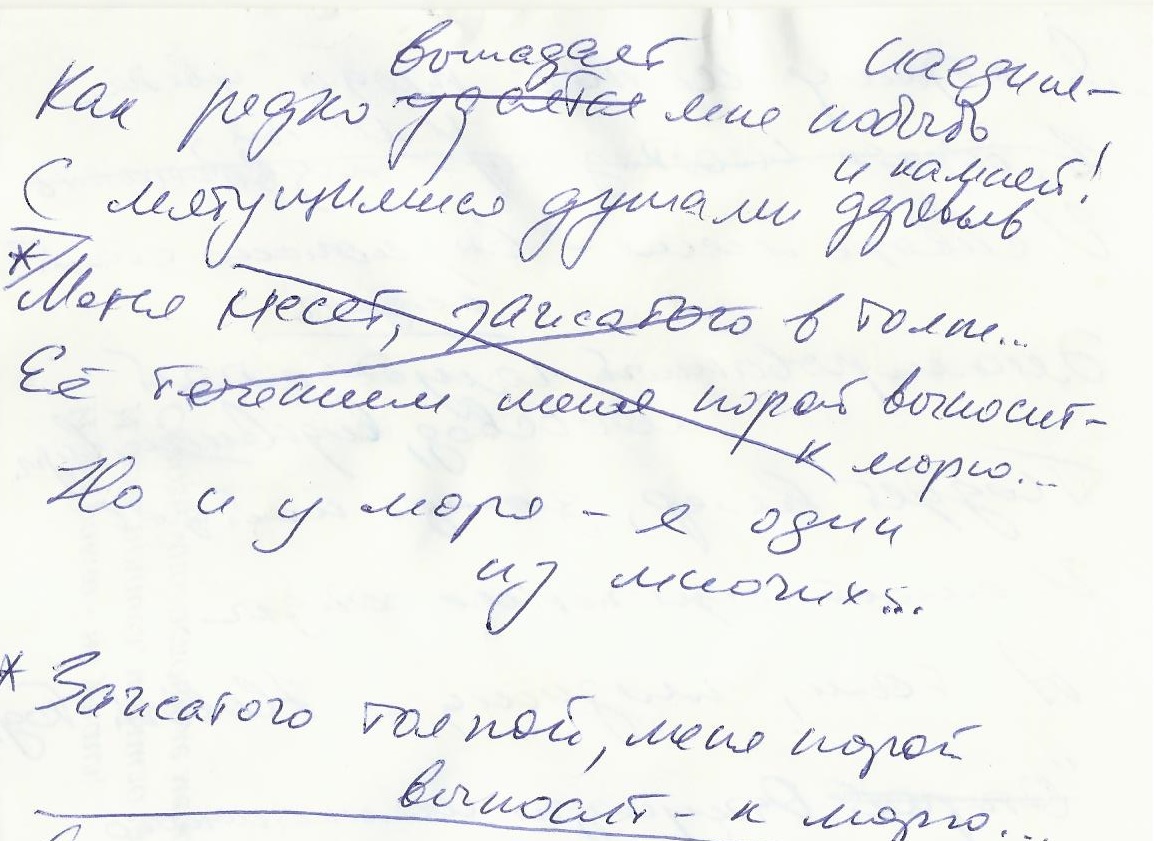 выпадает наедине-
Как редко удаётся мне побыть
и камней!
С мятущимися душами деревьев
* Меня несёт, зажатого в толпе...
Её течением меня порой выносит-
к морю...
Но и у моря - я один
из многих...
* Зажатого толпой, меня порой
выносит - к морю...